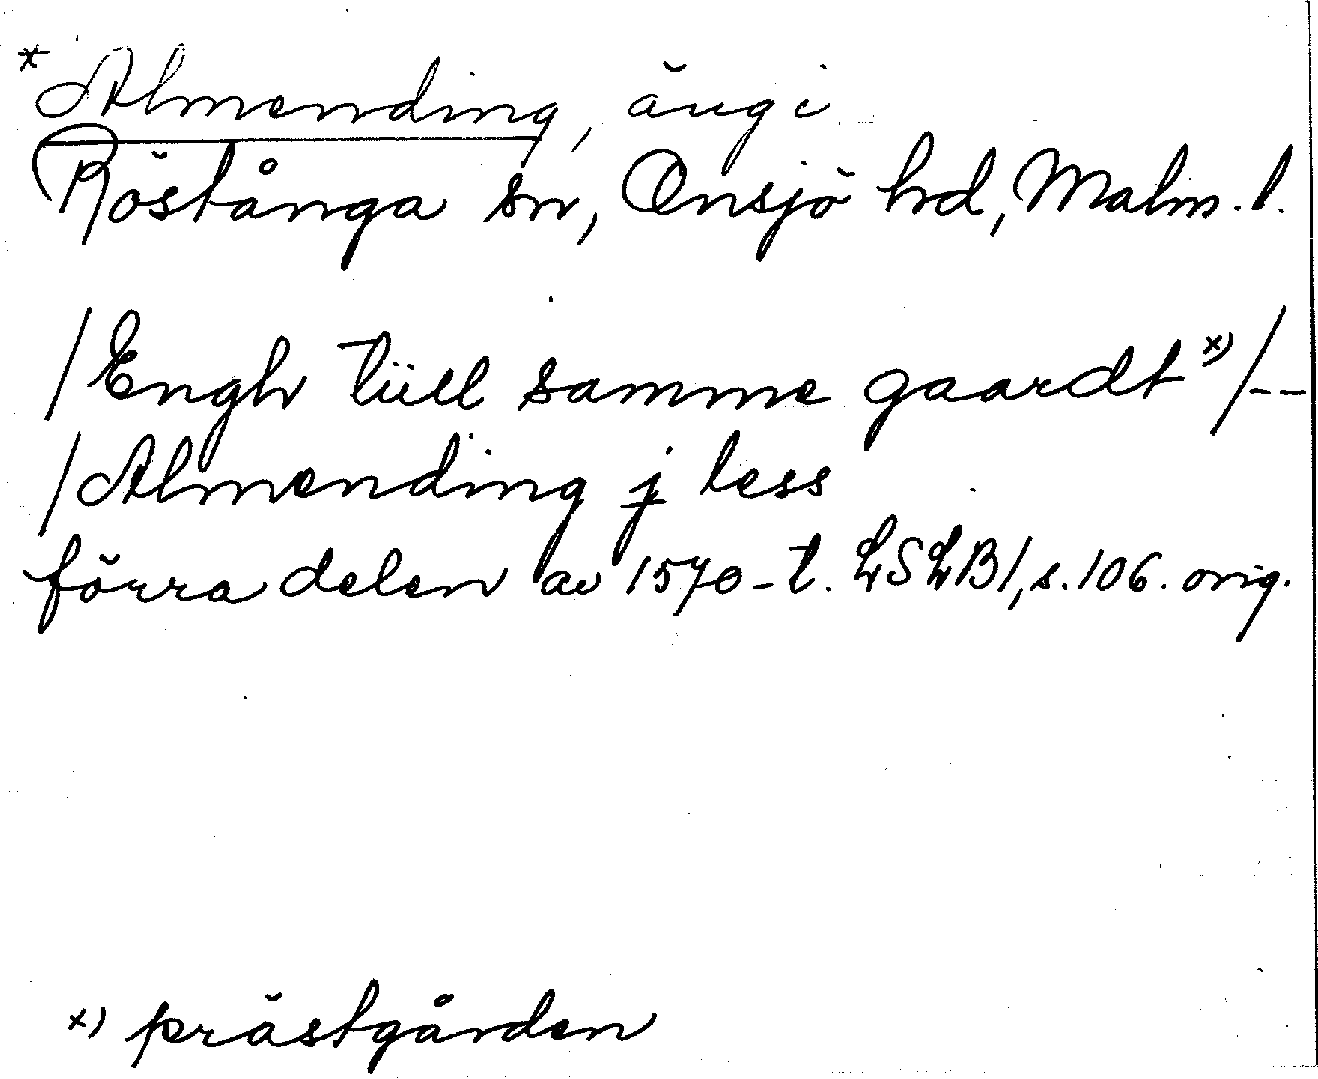 *Almending, äng i
Röstånga sn, Onsjö hd, Malm. l.
/Engh tüll samme gaardt x)/--
/Almending j less
förra delen av 1570-t. LSLB1, s. 106. orig.
x) prästgården